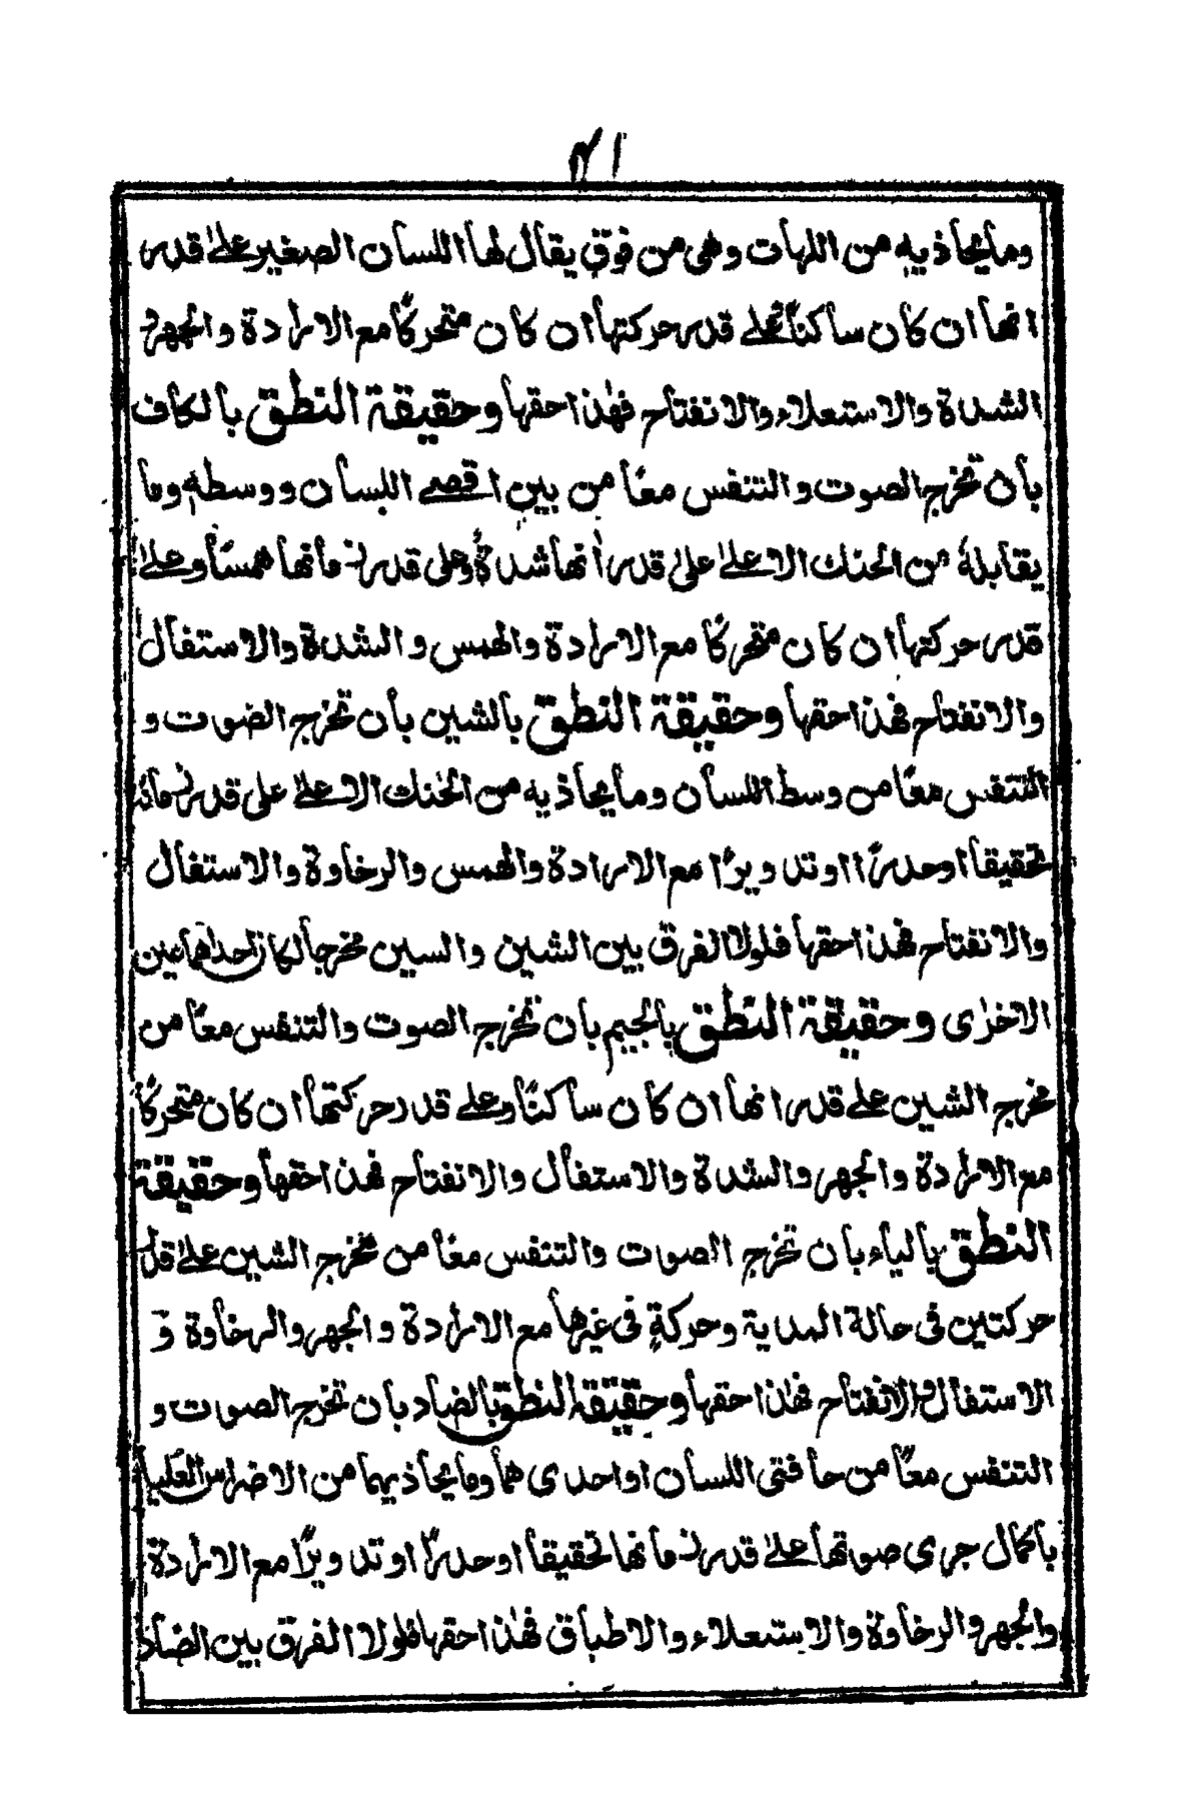 ٣١
وما يحاذيه من اللهات وهى من فوق يقال لها اللسان الصغير على قدر
انها ان كان ساكنًا وعلى قدر حركتها ان كان متحركًا مع الارادة والجهر و
الشدة والاستعلاء والانفتاح فهٰذا حقها وحقيقة النطق بالكاف
بان تخرج الصوت والتنفس معًا من بين اقصے اللسان ووسطه وما
يقابلهٗ من الحنك الاعلىٰ علىٰ قدر اٰنها شدةً وعلى قدر زمانها همسًا وعلىٰ
قدر حركتها ان كان متحركًا مع الارادة والهمس والشدة والاستفال
والانفتاح فهذا حقها وحقيقة النطق بالشين بان تخرج الصوت و
التنفس معًا من وسط اللسان وما يحاذيه من الحنك الاعلىٰ على قدر زمانه
تحقيقا اوحدرًا اوتدويرًا مع الارادة والهمس والرخاوة والاستفال
والانفتاح فهذا حقها فلولا الفرق بين الشين والسين مخرجا لكان احداهما عين
الاخرٰى وحقيقة النطق بالجيم بان تخرج الصوت والتنفس معًا من
مخرج الشين علے قدر انها ان كان ساكنًا وعلے قدر حركتها ان كان متحركًا
مع الارادة والجهر والشدة والاستفال والانفتاح فهذا حقها وحقيقة
النطق بالياء بان تخرج الصوت والتنفس معًا من مخرج الشين علىٰ قدر
حركتين فى حالة المداية وحركةٍ فى غيرها مع الارادة والجهر والرخاوة و
الاستفال والانفتاح فهٰذا حقها وحقيقة النطق بالضاد بان تخرج الصوت و
التنفس معًا من حافتى اللسان او احدى هما وما يحاذيهما من الاضراس العليا
باكمال جرى صوتها علىٰ قدر زمانها تحقيقا اوحدرًا اوتدويرًا مع الارادة
والجهر والرخاوة والاستعلاء والاطباق فهٰذا حقها فلولا الفرق بين الضاد